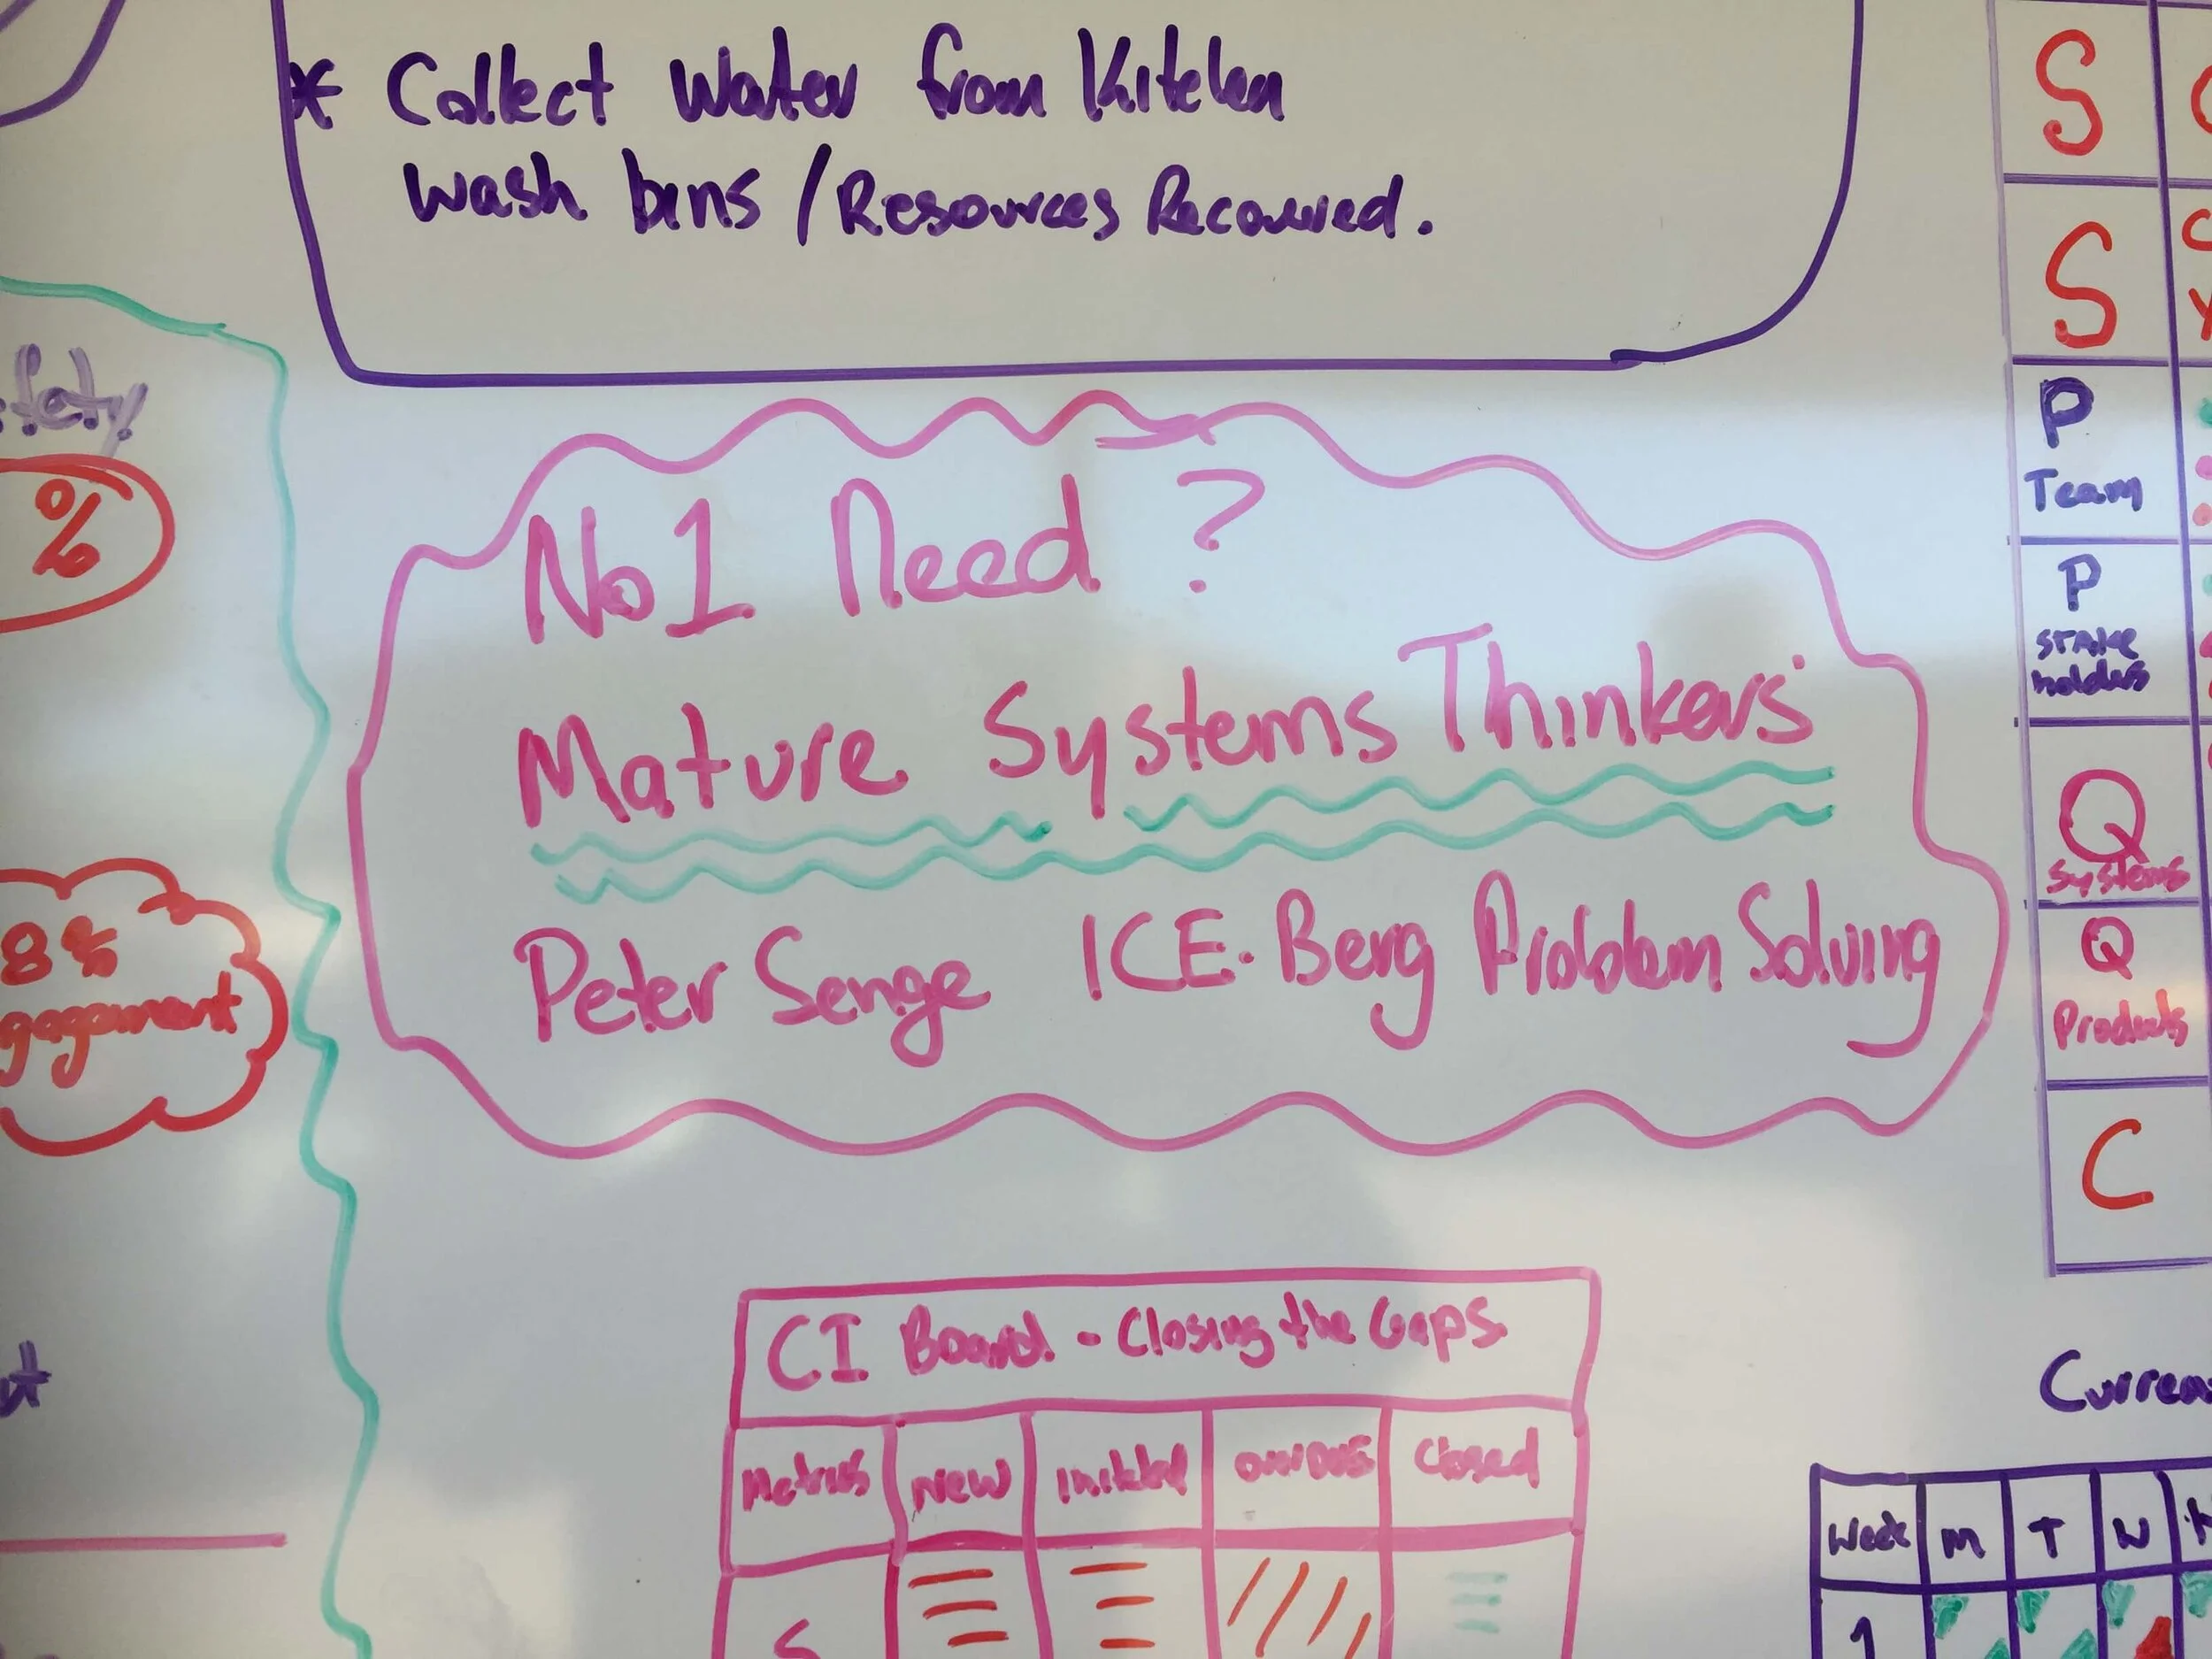 * Collect Water from Kitchen
wash bins / Resources Recovered.
%
8%
No1 Need ?
Mature Systems Thinkers
Peter Senge ICE-Berg Problem Solving
CI Board - Closing the Gaps
Metrics New Initiated overdue Closed
S
S
S
P
Team
P
STAke
holders
Q
Systems
Q
Products
C
Week M T W
1